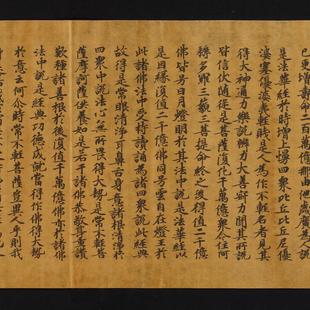 已更增壽命二百万億那由他歲廣為人說
是法華經於時增上慢四衆比丘比丘尼優
婆塞優婆夷輕賤是人為作不輕名者見其
得大神通力樂說辯力大善寂力聞其所說
皆信伏随從是菩薩復化千万億衆令住阿
耨多羅三藐三菩提命終之後得值二千億
佛皆号日月燈明於其法中說是法華經以
是因緣復值二千億佛同号雲自在燈王於
此諸佛法中受持讀誦為諸四衆說此經典
故得是常眼清淨耳鼻舌身意諸根清淨於
四衆中說法心无所畏得大勢是常不輕菩
薩摩訶薩供養如是若干諸佛恭敬尊重讚
歎種諸善根於後復值千万億佛亦於諸佛
法中說是經典功德成就當得作佛得大勢
於意云何尒時常不輕菩薩豈異人乎則我